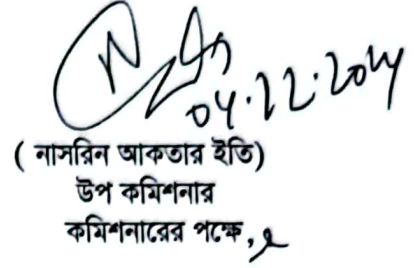 04.12.2024
( নাসরিন আকতার ইতি)
উপ কমিশনার
কমিশনারের পক্ষে,